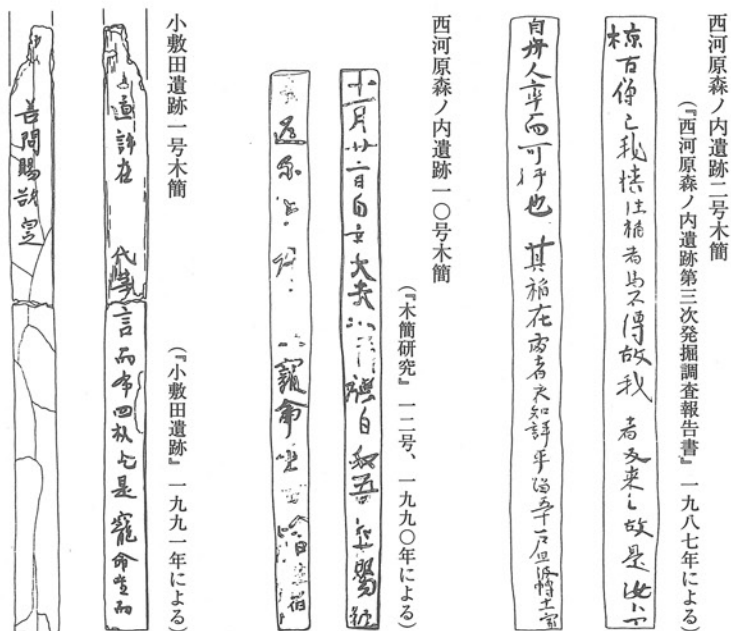 西河原森ノ内遺跡二号木簡
(『西河原森ノ内遺跡第三次発掘調査報告書』一九八七年による)
椋直傳之我持往稲者馬不得故我 者反来之故是汝卜
自舟人率而可行也 其稲在處者衣知評平留五十戸旦波博士家
西河原森ノ内遺跡一〇号木簡
(『木簡研究』一二号、一九九〇年による)
十一月廿二日自京大夫 白奴吾 賜
寵命坐
小敷田遺跡一号木簡
(『小敷田遺跡』一九九一年による)
直許在 代等言而布四枚乞是寵命坐而
善問賜欲